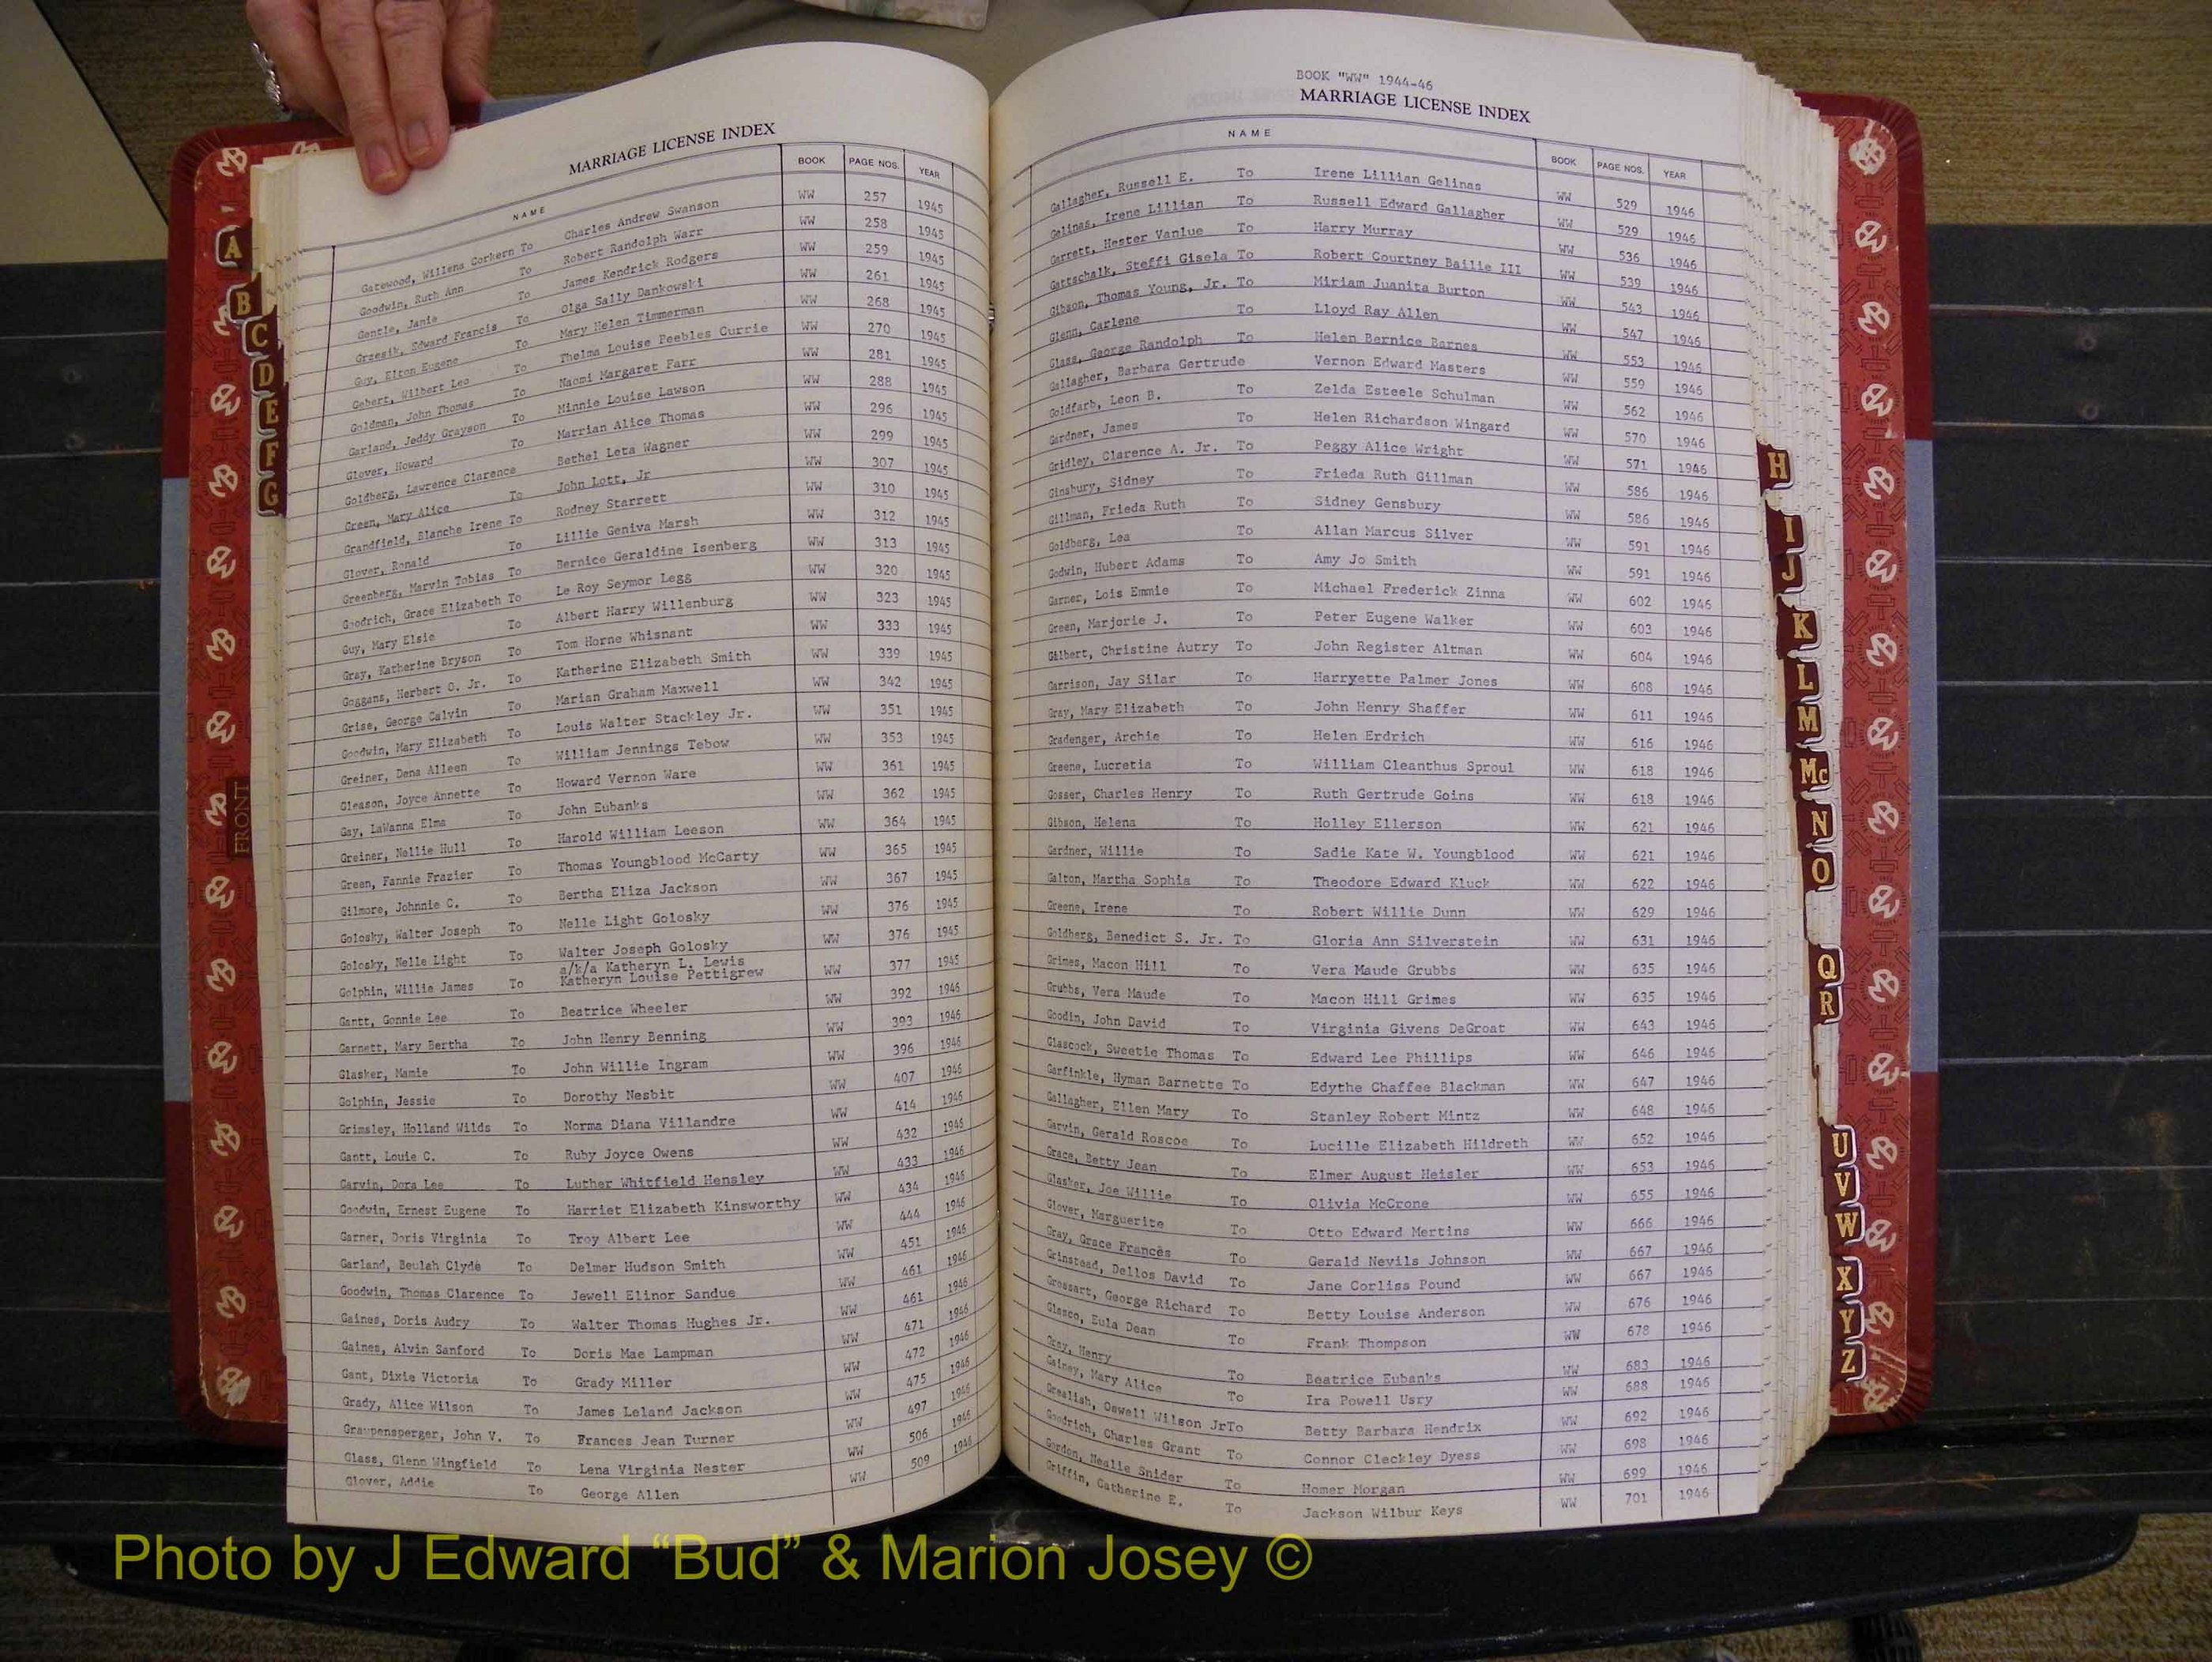 MARRIAGE LICENSE INDEX
NAME BOOK PAGE NOS. YEAR
Gatewood, Willena Corkern To Charles Andrew Swanson WW 257 1945
Goodwin, Ruth Ann To Robert Randolph Warr WW 258 1945
Gentle, Janie To James Kendrick Rodgers WW 259 1945
Grzesik, Edward Francis To Olga Sally Dankowski WW 261 1945
Guy, Elton Eugene To Mary Helen Timmerman WW 268 1945
Gebert, Wilbert Leo To Thelma Louise Peebles Currie WW 270 1945
Goldman, John Thomas To Naomi Margaret Farr WW 281 1945
Garland, Jeddy Grayson To Minnie Louise Lawson WW 288 1945
Glover, Howard To Marrian Alice Thomas WW 296 1945
Goldberg, Lawrence Clarence Bethel Leta Wagner WW 299 1945
Green, Mary Alice To John Lott, Jr WW 307 1945
Grandfield, Blanche Irene To Rodney Starrett WW 310 1945
Glover, Ronald To Lillie Geniva Marsh WW 312 1945
Greenberg, Marvin Tobias To Bernice Geraldine Isenberg WW 313 1945
Goodrich, Grace Elizabeth To Le Roy Seymor Legg WW 320 1945
Guy, Mary Elsie To Albert Harry Willenburg WW 323 1945
Gray, Katherine Bryson To Tom Horne Whisnant WW 333 1945
Goggans, Herbert O. Jr. To Katherine Elizabeth Smith WW 339 1945
Grise, George Calvin To Marian Graham Maxwell WW 342 1945
Goodwin, Mary Elizabeth To Louis Walter Stackley Jr. WW 351 1945
Greiner, Dena Alleen To William Jennings Tebow WW 353 1945
Gleason, Joyce Annette To Howard Vernon Ware WW 361 1945
Gay, LaWanna Elma To John Eubanks WW 362 1945
Greiner, Nellie Hull To Harold William Leeson WW 364 1945
Green, Fannie Frazier To Thomas Youngblood McCarty WW 365 1945
Gilmore, Johnnie C. To Bertha Eliza Jackson WW 367 1945
Golosky, Walter Joseph To Nelle Light Golosky WW 376 1945
Golosky, Nelle Light To Walter Joseph Golosky WW 376 1945
a/k/a Katheryn L. Lewis
Golphin, Willie James To Katheryn Louise Pettigrew WW 377 1945
Gantt, Gonnie Lee To Beatrice Wheeler WW 392 1946
Garnett, Mary Bertha To John Henry Benning WW 393 1946
Glasker, Mamie To John Willie Ingram WW 396 1946
Golphin, Jessie To Dorothy Nesbit WW 407 1946
Grimsley, Holland Wilds To Norma Diana Villandre WW 414 1946
Gantt, Louie C. To Ruby Joyce Owens WW 432 1946
Garvin, Dora Lee To Luther Whitfield Hensley WW 433 1946
Goodwin, Ernest Eugene To Harriet Elizabeth Kinsworthy WW 434 1946
Garner, Doris Virginia To Troy Albert Lee WW 444 1946
Garland, Beulah Clyde To Delmer Hudson Smith WW 451 1946
Goodwin, Thomas Clarence To Jewell Elinor Sandue WW 461 1946
Gaines, Doris Audry To Walter Thomas Hughes Jr. WW 461 1946
Gaines, Alvin Sanford To Doris Mae Lampman WW 471 1946
Gant, Dixie Victoria To Grady Miller WW 472 1946
Grady, Alice Wilson To James Leland Jackson WW 475 1946
Graupensperger, John V. To Frances Jean Turner WW 497 1946
Glass, Glenn Wingfield To Lena Virginia Nester WW 506 1946
Glover, Addie To George Allen WW 509 1946
BOOK "WW" 1944-46
MARRIAGE LICENSE INDEX
NAME BOOK PAGE NOS. YEAR
Gallagher, Russell E. To Irene Lillian Gelinas WW 529 1946
Gelinas, Irene Lillian To Russell Edward Gallagher WW 529 1946
Garrett, Hester Vanlue To Harry Murray WW 536 1946
Gattschalk, Steffi Gisela To Robert Courtney Bailie III WW 539 1946
Gibson, Thomas Young, Jr. To Miriam Juanita Burton WW 543 1946
Glenn, Carlene To Lloyd Ray Allen WW 547 1946
Glass, George Randolph To Helen Bernice Barnes WW 553 1946
Gallagher, Barbara Gertrude Vernon Edward Masters WW 559 1946
Goldfarb, Leon B. To Zelda Esteele Schulman WW 562 1946
Gardner, James To Helen Richardson Wingard WW 570 1946
Gridley, Clarence A. Jr. To Peggy Alice Wright WW 571 1946
Ginsbury, Sidney To Frieda Ruth Gillman WW 586 1946
Gillman, Frieda Ruth To Sidney Gensbury WW 586 1946
Goldberg, Lea To Allan Marcus Silver WW 591 1946
Godwin, Hubert Adams To Amy Jo Smith WW 591 1946
Garner, Lois Emmie To Michael Frederick Zinna WW 602 1946
Green, Marjorie J. To Peter Eugene Walker WW 603 1946
Gilbert, Christine Autry To John Register Altman WW 604 1946
Garrison, Jay Silar To Harryette Palmer Jones WW 608 1946
Gray, Mary Elizabeth To John Henry Shaffer WW 611 1946
Gradenger, Archie To Helen Erdrich WW 616 1946
Greene, Lucretia To William Cleanthus Sproul WW 618 1946
Gosser, Charles Henry To Ruth Gertrude Goins WW 618 1946
Gibson, Helena To Holley Ellerson WW 621 1946
Gardner, Willie To Sadie Kate W. Youngblood WW 621 1946
Galton, Martha Sophia To Theodore Edward Kluck WW 622 1946
Greene, Irene To Robert Willie Dunn WW 629 1946
Goldberg, Benedict S. Jr. To Gloria Ann Silverstein WW 631 1946
Grimes, Macon Hill To Vera Maude Grubbs WW 635 1946
Grubbs, Vera Maude To Macon Hill Grimes WW 635 1946
Goodin, John David To Virginia Givens DeGroat WW 643 1946
Glascock, Sweetie Thomas To Edward Lee Phillips WW 646 1946
Garfinkle, Hyman Barnette To Edythe Chaffee Blackman WW 647 1946
Gallagher, Ellen Mary To Stanley Robert Mintz WW 648 1946
Garvin, Gerald Roscoe To Lucille Elizabeth Hildreth WW 652 1946
Grace, Betty Jean To Elmer August Heisler WW 653 1946
Glasker, Joe Willie To Olivia McCrone WW 655 1946
Glover, Marguerite To Otto Edward Mertins WW 666 1946
Gray, Grace Frances To Gerald Nevils Johnson WW 667 1946
Grinstead, Dellos David To Jane Corliss Pound WW 667 1946
Grossart, George Richard To Betty Louise Anderson WW 676 1946
Glasco, Eula Dean To Frank Thompson WW 678 1946
Gray, Henry To Beatrice Eubanks WW 683 1946
Gainey, Mary Alice To Ira Powell Usry WW 688 1946
Grealish, Oswell Wilson Jr To Betty Barbara Hendrix WW 692 1946
Goodrich, Charles Grant To Connor Cleckley Dyess WW 698 1946
Gordon, Nealie Snider To Homer Morgan WW 699 1946
Griffin, Catherine E. To Jackson Wilbur Keys WW 701 1946
A
B
C
D
E
F
G
FRONT
H
I
J
K
L
M
Mc
N
O
Q
R
U
V
W
X
Y
Z
Photo by J Edward “Bud” & Marion Josey ©